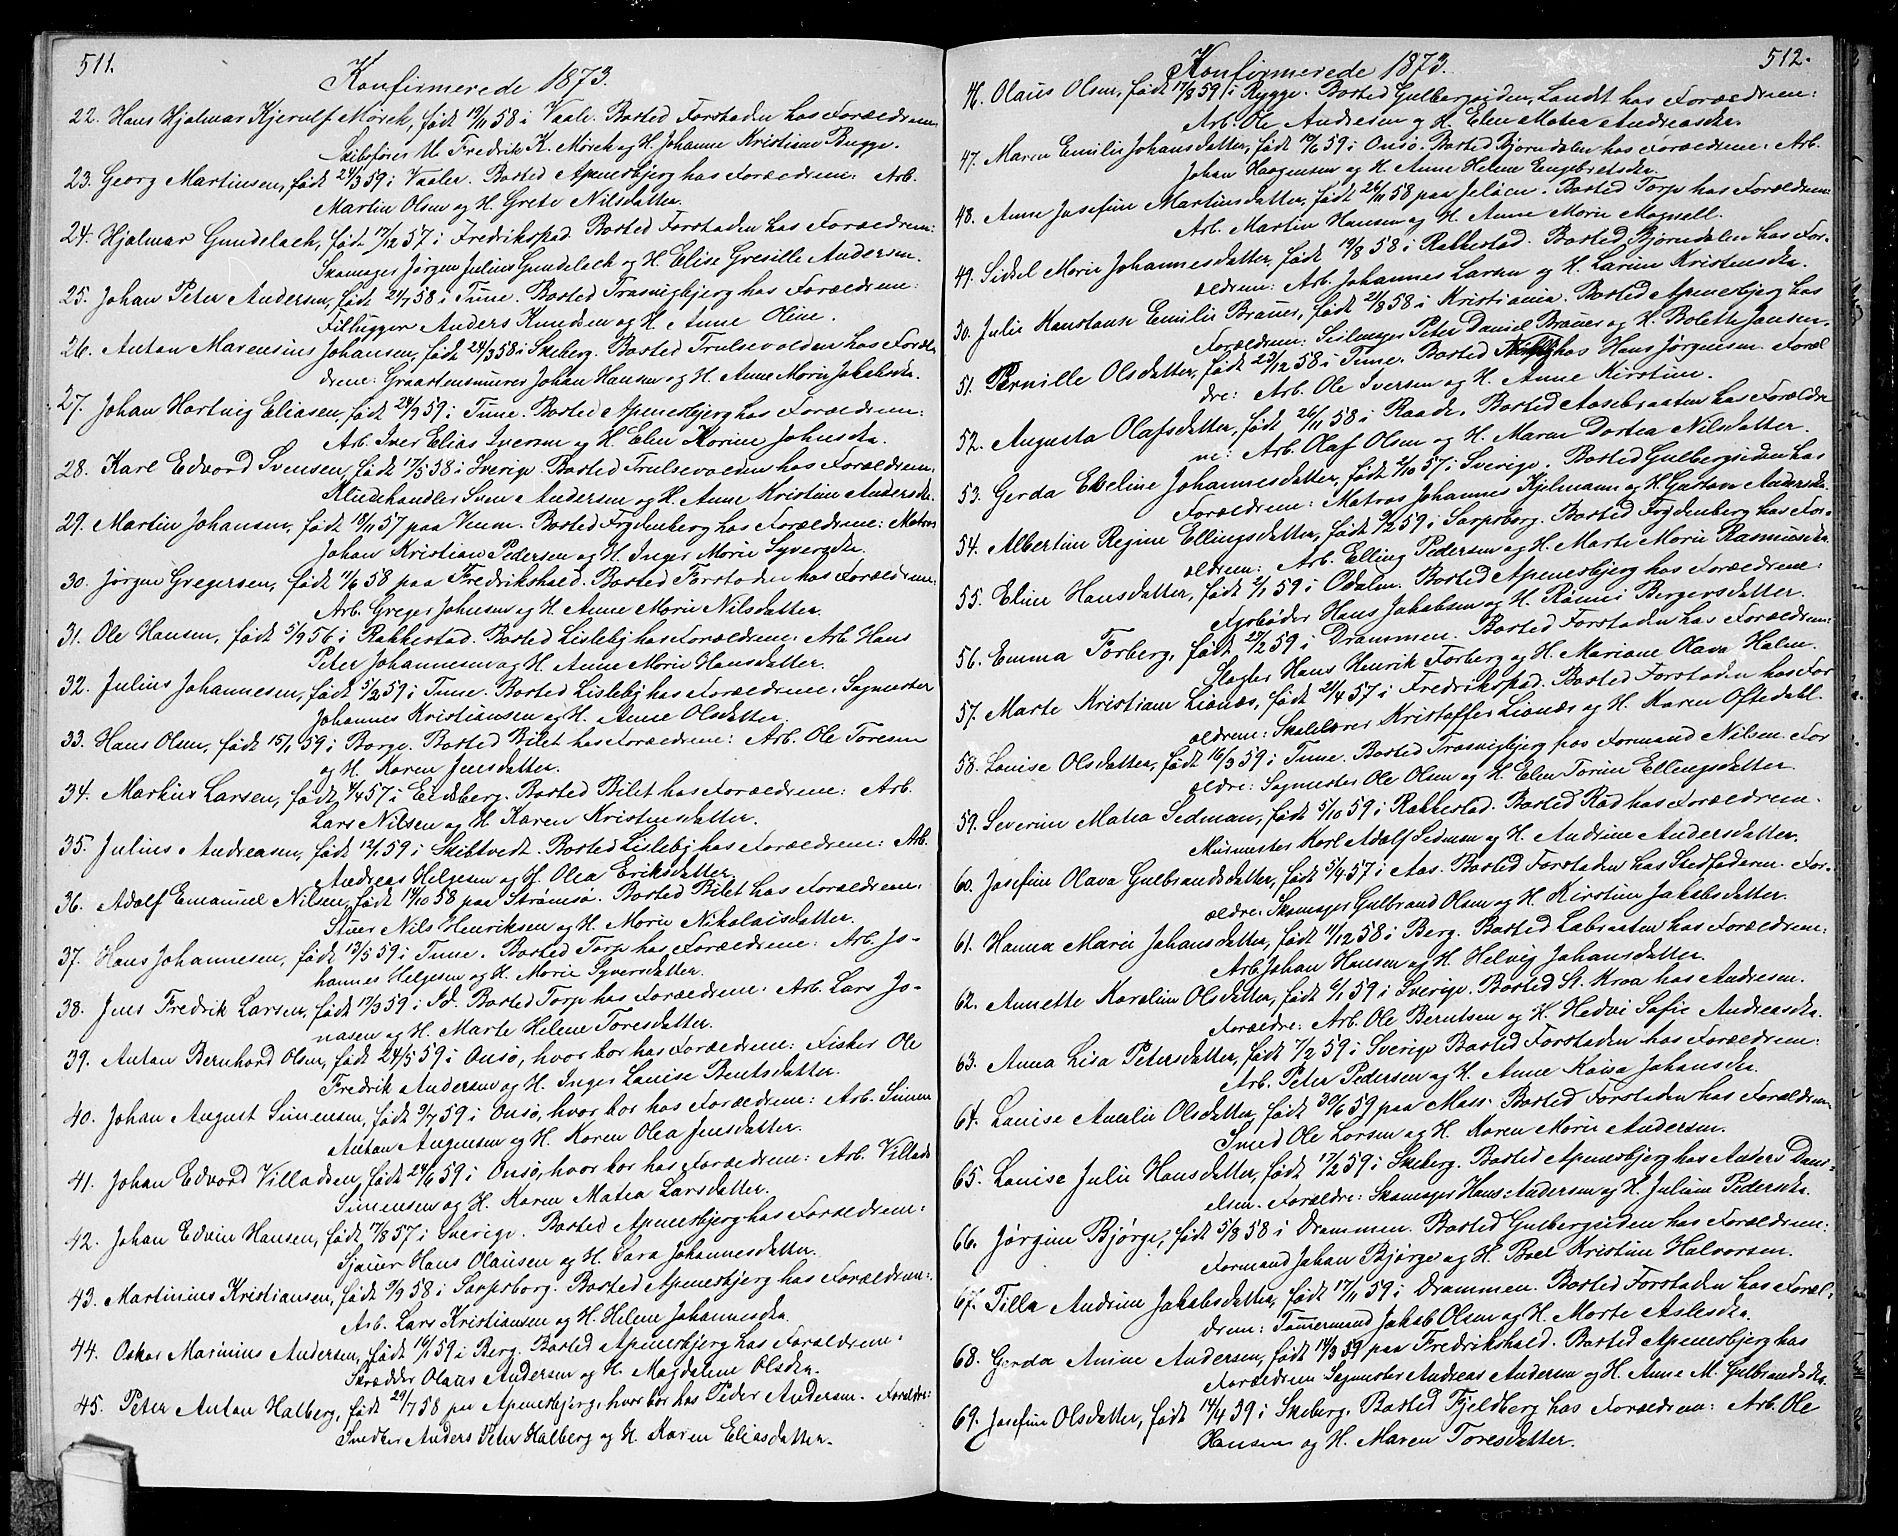 511.
Konfirmerede 1873.
22. Hans Hjalmar Kjerulf Mörch, født 19/11 58 i Vaale. Bosted Forstaden hos Forældrene:
Skibsfører M. Fredrik K. Mörch og H. Johanne Kristiane Bugge.
23. Georg Martinsen, født 24/3 59 i Vaaler. Bosted Apenesbjerg hos Forældrene: Arb.
Martin Olsen og H. Grete Nilsdatter.
24. Hjalmar Gundelach, født 17/12 57 i Fredrikstad. Bosted Forstaden hos Forældrene:
Skomager Jørgen Julius Gundelach og H. Elise Gresille Andersen.
25. Johan Peter Andersen, født 21/7 58 i Tune. Bosted Trosvigbjerg hos Forældrene:
Filhugger Anders Knudsen og H. Anne Oline.
26. Anton Marensius Johansen, født 24/3 58 i Skeberg. Bosted Trulsevolden hos Foræl-
drene: Graastensmurer Johan Hansen og H. Anne Marie Jakobsda.
27. Johan Hartvig Eliasen, født 24/9 59 i Tune. Bosted Apenesbjerg hos Forældrene:
Arb. Iver Elias Iversen og H. Elen Korine Johnsda.
28. Karl Edvard Svensen, født 17/5 58 i Sverige. Bosted Trulsevolden hos Forældrene:
Kludehandler Sven Andersen og H. Anne Kristine Andersda.
29. Martin Johansen, født 18/11 57 paa Veum. Bosted Frydenberg hos Forældrene: Matros
Johan Kristian Pedersen og H. Inger Marie Syversda.
30. Jørgen Gregersen, født 11/6 58 paa Fredrikshald. Bosted Forstaden hos Forældrene:
Arb. Greger Johnsen og H. Anne Marie Nilsdatter.
31. Ole Hansen, født 5/9 56 i Rakkestad. Bosted Lisleby hos Forældrene: Arb. Hans
Peter Johannesen og H. Anne Marie Hansdatter.
32. Julius Johannesen, født 5/2 59 i Tune. Bosted Lisleby hos Forældrene: Sagmester
Johannes Kristiansen og H. Anne Olsdatter.
33. Hans Olsen, født 15/1 59 i Borge. Bosted Bilet hos Forældrene: Arb. Ole Toresen
og H. Karen Jensdatter.
34. Markus Larsen, født 1/4 57 i Eidsberg. Bosted Bilet hos Forældrene: Arb.
Lars Nilsen og H. Karen Kristensdatter.
35. Julius Andreasen, født 12/1 59 i Skibtvedt. Bosted Lisleby hos Forældrene: Arb.
Andreas Helgesen og H. Olea Eriksdatter.
36. Adolf Emanuel Nilsen, født 14/10 58 paa Strømsø. Bosted Bilet hos Forældrene:
Stuer Nils Henriksen og H. Marie Nikolaisdatter.
37. Hans Johannesen, født 13/5 59 i Tune. Bosted Torp hos Forældrene: Arb. Jo-
hannes Helgesen og H. Marie Syversdatter.
38. Jens Fredrik Larsen, født 17/3 59 i Id. Bosted Torp hos Forældrene. Arb. Lars Jo-
nasen og H. Marte Helene Toresdatter.
39. Anton Bernhard Olsen, født 24/5 59 i Onsø, hvor bor hos Forældrene: Fisker Ole
Fredrik Andersen og H. Inger Louise Bentsdatter.
40. Johan August Simensen, født 9/7 59 i Onsø, hvor bor hos Forældrene: Arb. Simen
Anton Augensen og H. Karen Olea Jensdatter.
41. Johan Edvard Villadsen, født 24/6 59 i Onsø, hvor bor hos Forældrene: Arb. Villads
Simensen og H. Karen Matea Larsdatter.
42. Johan Edvin Hansen, født 17/8 57 i Sverige. Bosted Apenesbjerg hos Forældrene:
Sjauer Hans Olausen og H. Sara Johannesdatter.
43. Martinius Kristiansen, født 9/9 58 i Sarpsborg. Bosted Apenesbjerg hos Forældrene:
Arb. Lars Kristiansen og H. Helene Johannesda.
44. Oskar Marinius Andersen, født 16/1 59 i Berg. Bosted Apenesbjerg hos Forældrene:
Skrædder Olaus Andersen og H. Magdalene Olsda.
45. Peter Anton Halberg, født 29/7 58 paa Apenesbjerg, hvor bor hos Peder Andersen. Forældre:
Snedker Anders Peter Halberg og H. Karen Eliasdatter.
512.
Konfirmerede 1873.
46. Olaus Olsen, født 17/8 59 i Rygge. Bosted Gulbergsiden, Landet hos Forældrene:
Arb. Ole Andresen og H. Elen Matea Andreasda.
47. Maren Emilie Johansdatter, født 10/6 59 i Onsö. Bosted Bjørndalen hos Forældrene: Arb.
Johan Haagensen og H. Anne Helene Engebretsda.
48. Anne Josefine Martinsdatter, født 26/11 58 paa Jeløen. Bosted Torp hos Forældrene
Arb. Martin Hansen og H. Anne Marie Magnell.
49. Sidsel Marie Johannesdatter, født 19/8 58 i Rakkestad. Bosted Bjørndalen hos For-
ældrene: Arb. Johannes Larsen og H. Larine Kristensda.
50. Julie Konstanse Emilie Brauer, født 2/8 58 i Kristiania. Bosted Apenesbjerg hos
Forældrene: Seilmager Peter Daniel Brauer og H. Bolette Jansen.
51. Pernille Olsdatter, født 23/12 58 i Tune. Bosted hos Hans Jørgensen. Foræl
dre: Arb. Ole Iversen og H. Anne Kirstine.
52. Augusta Olafsdatter, født 26/11 58 i Raade. Bosted Aasebraaten hos Forældre
ne: Arb. Olaf Olsen og H. Maren Dortea Nilsdatter.
53. Gerda Eveline Johannesdatter, født 2/10 57 i Sverige. Bosted Gulbergsiden hos
Forældrene: Matros Johannes Kjelmann og H. Gustava Andersda.
54. Albertine Regine Ellingsdatter, født 9/2 59 i Sarpsborg. Bosted Frydenberg hos For-
ældrene: Arb. Elling Pedersen og H. Marte Marie Rasmusda.
55. Eline Hansdatter, født 2/1 59 i Odalen. Bosted Apenesbjerg hos Forældrene:
Fyrbøder Hans Jakobsen og H. Rønnei Bergersdatter.
56. Emma Forberg, født 27/2 59 i Drammen. Bosted Forstaden hos Forældrene:
Slagter Hans Henrik Forberg og H. Mariane Olava Holm.
57. Marte Kristiane Lionæs, født 21/4 57 i Fredrikstad. Bosted Forstaden hos For
ældrene: Skolelærer Kristoffer Lionæs og H. Karen Oftedahl.
58. Louise Olsdatter, født 16/3 59 i Tune. Bosted Trosvigbjerg hos Formand Nilsen. For
ældre: Sagmester Ole Olsen og H. Elen Torine Ellingsdatter.
59. Severine Matea Sedman, født 5/10 59 i Rakkestad. Bosted Råd hos Forældrene.
Murmester Karl Adolf Sedman og H. Andrine Andersdatter.
60. Josefine Olava Gulbrandsdatter, født 5/4 57 i Aas. Bosted Forstaden hos Stedfaderen. For-
ældre: Skomager Gulbrand Olsen og H. Kirstine Jakobsdatter.
61. Hanna Marie Johansdatter, født 11/12 58 i Berg. Bosted Labraaten hos Forældrene:
Arb. Johan Hansen og H. Helvig Johansdatter.
62. Annette Karoline Olsdatter, født 6/1 59 i Sverige. Bosted St. Kroa hos Andresen.
Forældre: Arb. Ole Berntsen og H. Hedvi Sofie Andreasda.
63. Anna Lisa Petersdatter, født 7/2 59 i Sverige Bosted Forstaden hos Forældrene:
Arb. Peter Pedersen og H. Anne Kaisa Johansda.
64. Louise Amalie Olsdatter, født 30/6 59 paa Moss. Bosted Forstaden hos Forældrene
Smed Ole Larsen og H. Karen Marie Andersen.
65. Louise Julie Hansdatter, født 17/2 59 i Skeberg. Bosted Apenesbjerg hos Anders Dani-
elsen. Forældre: Skomager Hans Andersen og H. Juliane Pedersda.
66. Jørgine Bjørge, født 5/8 58 i Drammen. Bosted Gulbergsiden hos Forældrene:
Formand Johan Bjørge og H. Boel Kristine Halvorsen.
67. Tilla Andrine Jakobsdatter, født 17/11 59 i Drammen. Bosted Forstaden hos Foræl-
drene: Tømmermand Jakob Olsen og H. Marte Aslesda.
68. Gerda Amine Andersen, født 14/3 59 paa Fredrikshald. Bosted Apenesbjerg hos
Forældrene Sagmester Andreas Andersen og H. Anne M. Gulbrandsda.
69. Josefine Olsdatter, født 14/4 59 i Skeberg. Bosted Fjeldberg hos Forældrene: Arb. Ole
Hansen og H. Maren Toresdatter.